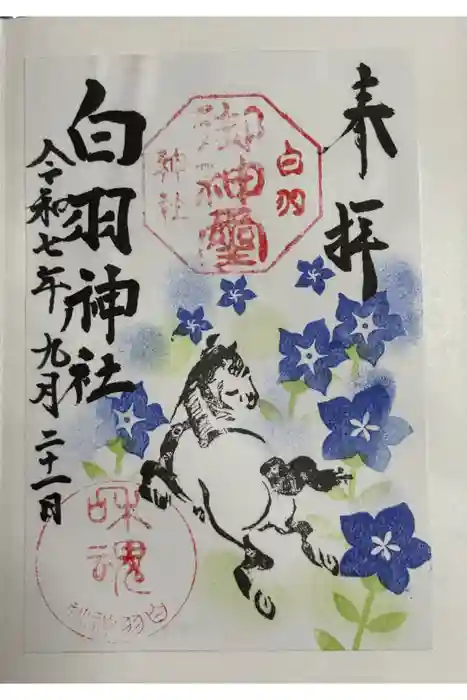 奉拝
白羽
御神璽
神社
白羽神社
令和七年九月二十一日
魂
白羽神社